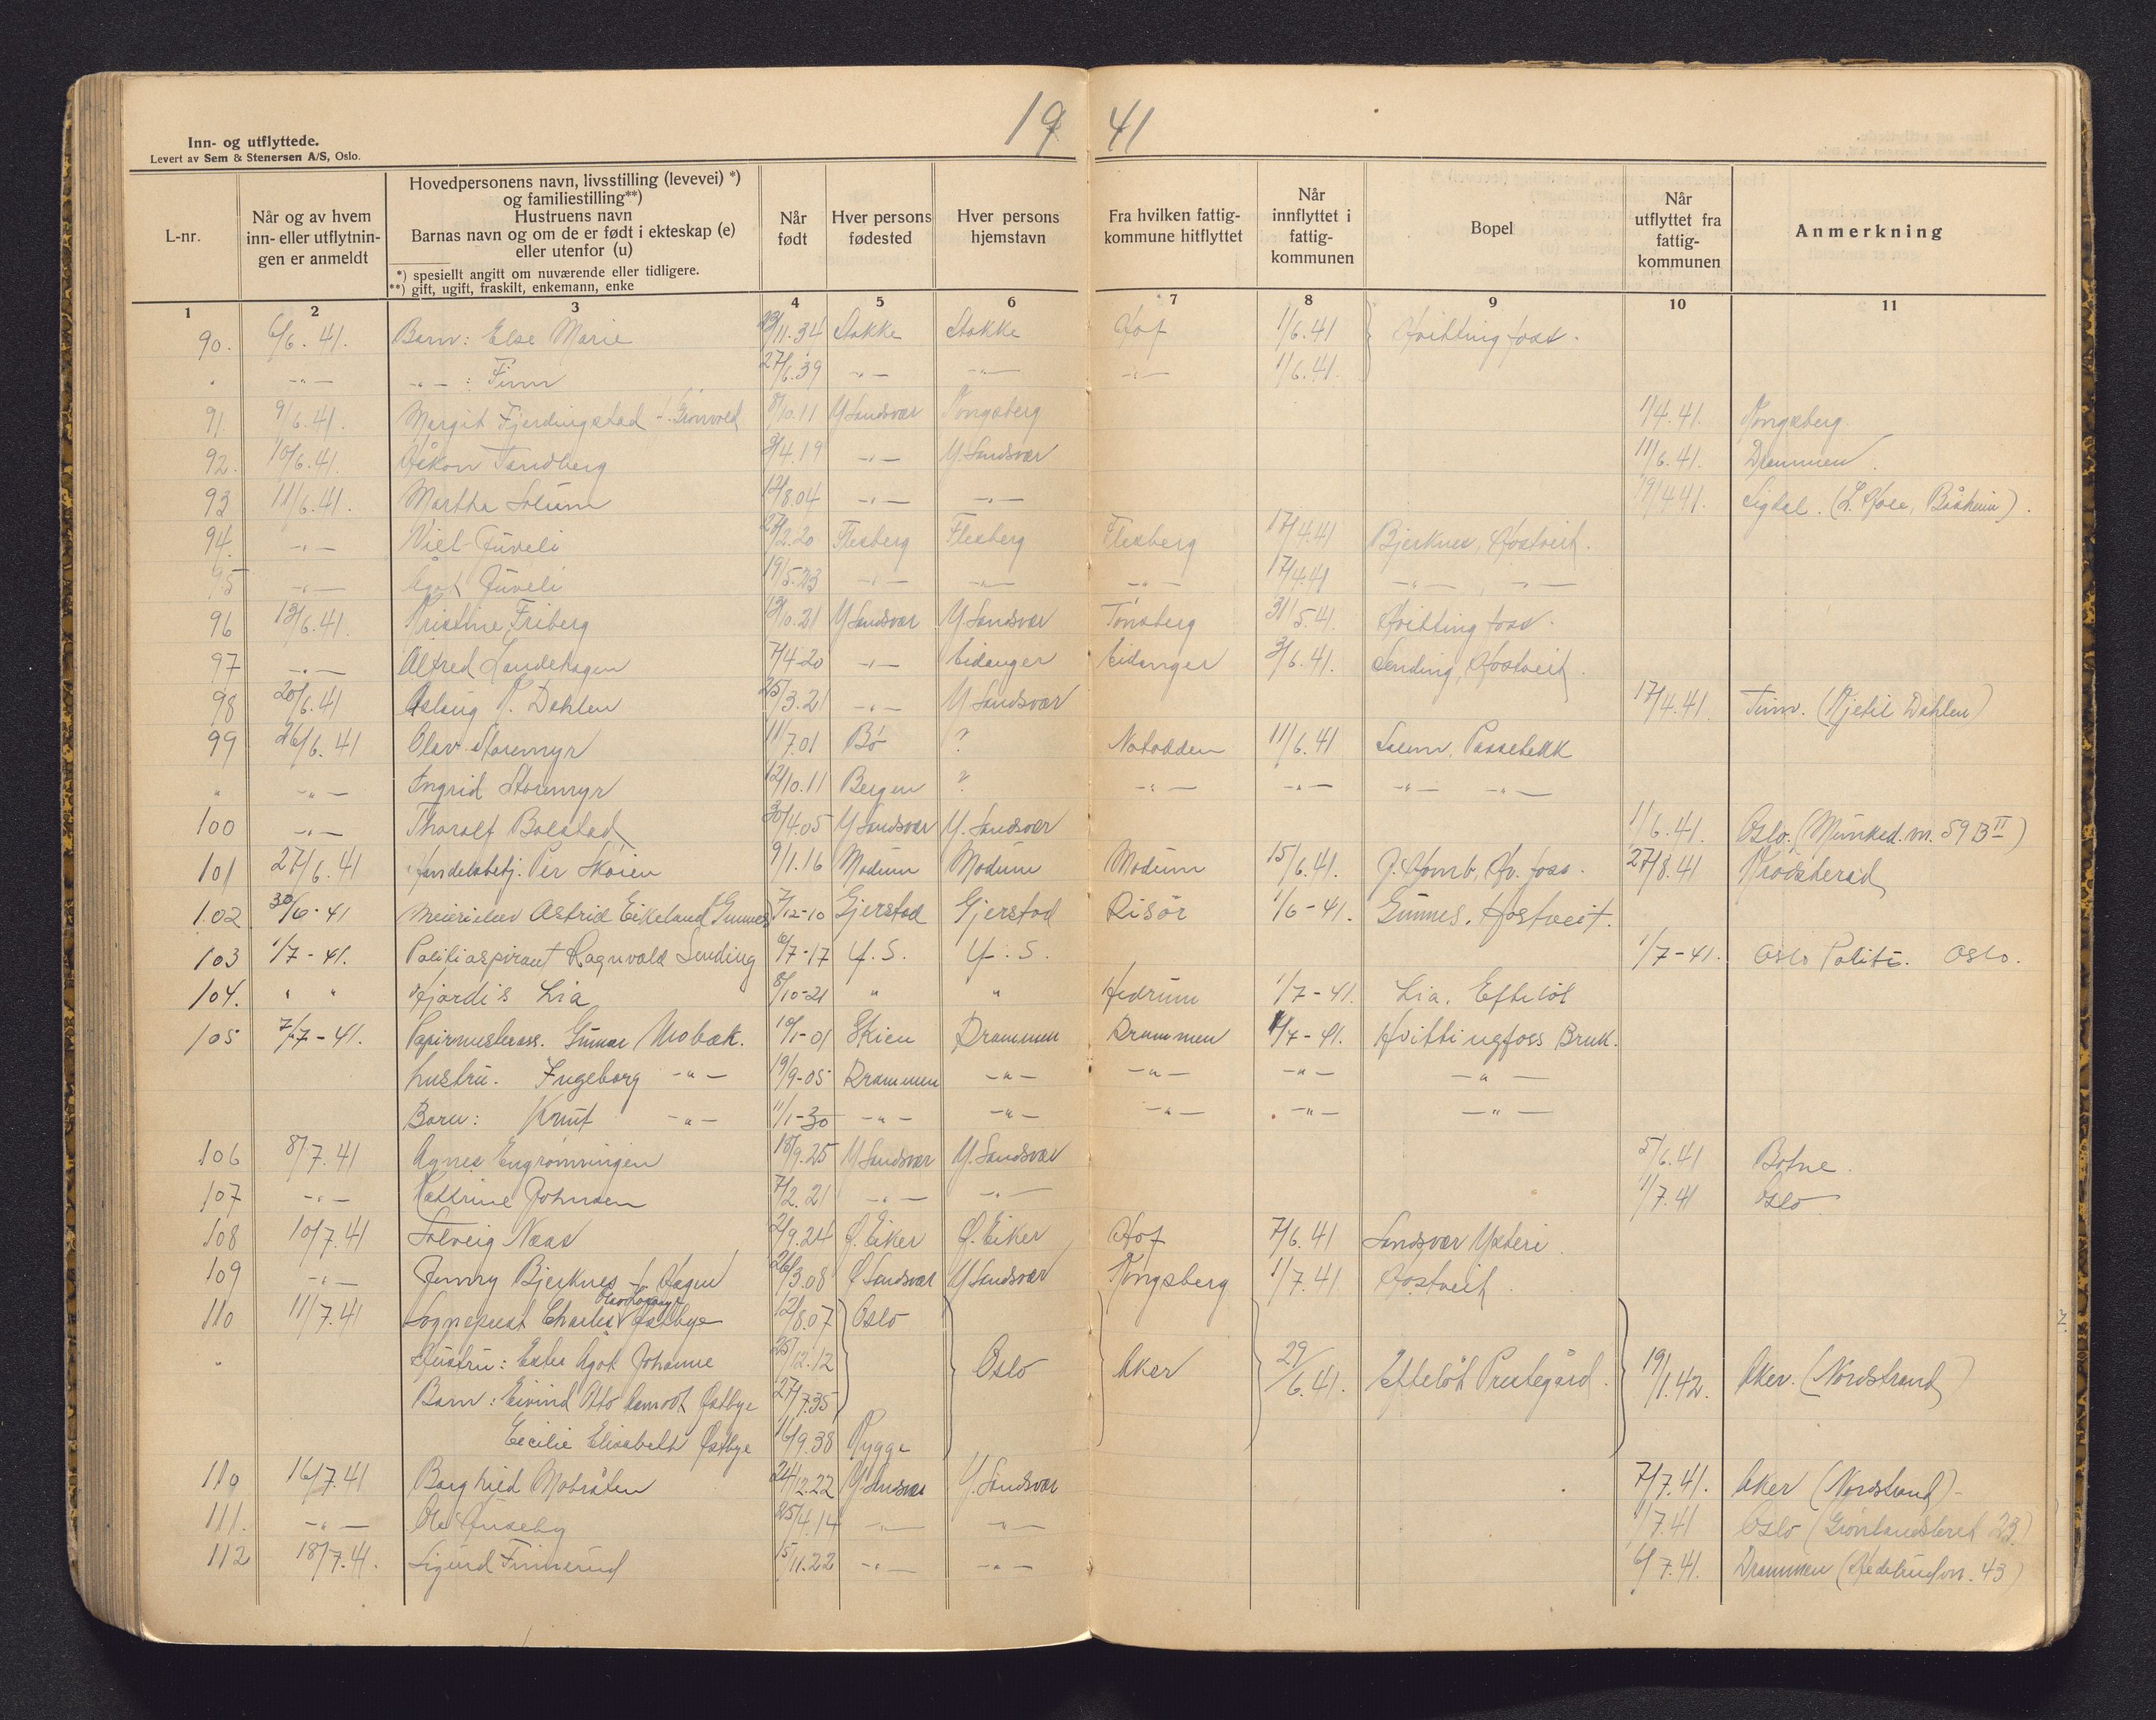 19 41
Inn- og utflyttede.
Levert av Sem & Stenersen A/S, Oslo.
L-nr.
Når og av hvem inn- eller utflytnin-gen er anmeldt
Hovedpersonens navn, livsstilling (levevei) *)
og familiestilling**)
Hustruens navn
Barnas navn og om de er født i ekteskap (e)
eller utenfor (u)
*) spesiellt angitt om nuværende eller tidligere.
**) gift, ugift, fraskilt, enkemann, enke
Når født
Hver persons fødested
Hver persons hjemstavn
Fra hvilken fattig-kommune hitflyttet
Når innflyttet i fattig-kommunen
Bopel
Når utflyttet fra fattig-kommunen
Anmerkning
1 2 3 4 5 6 7 8 9 10 11
90. 6/6.41. Barn: Else Marie 23/11.34 Stokke Stokke Hof 1/6.41 Hvittingfoss.
" -"- -"- : Finn 27/6.39 -"- -"- -"- 1/6.41.
91 9/6.41. Margit Fjerdingstad f. Grønvold 8/10.11 Y Sandsvær Kongsberg 1/4.41. Kongsberg
92. 10/6.41. Håkon Tandberg 3/4.19 -"- Y. Sandsvær 11/6.41. Drammen.
93 11/6.41. Martha Solum 12/8.04 -"- -"- 19/4.41. Sigdal. (L. Hole, Båsheim).
94. -"- Niel Juveli 27/2.20 Flesberg Flesberg Flesberg 17/4.41 Bjerknes, Hostveit.
95 -"- Ågot Juveli 19/5.23 -"- -"- -"- 17/4.41 -"- -"-
96 13/6.41. Kristine Friberg 13/10.21 Y Sandsvær Y. Sandsvær Tønsberg 31/5.41. Hvittingfoss.
97 -"- Alfred Landehagen 7/4-20 -"- Eidanger Eidanger 3/6.41. Sending, Hostveit.
98 20/6.41 Aslaug K. Dahlen 25/3.21 -"- Y Sandsvær 17/4.41. Tinn. (Kjetil Dahlen)
99 26/6.41 Olav Storemyr 11/7.01 Bø ? Notodden 11/6.41 Passebekk
" -"- Ingrid Storemyr 12/10.11 Bergen ? -"- -"- -"- -"-
100 -"- Thoralf Bolstad 30/4-05 Y Sandsvær Y. Sandsvær 1/6.41. Oslo. (Munked.vn. 59 B II)
101 27/6.41 Handelsbetj. Per Skoien 9/1.16 Modum Modum Modum 15/6.41. Hv. foss. 27/8.41 Krødsherad
102 30/6-41 Meierielev Astrid Eikeland Gunnes 7/12-10 Gjerstad Gjerstad Risör 1/6-41. Gunnes. Hostveit.
103 1/7-41. Politiaspirant Ragnvald Sending 6/7-17 Y.S. Y.S. 1/7-41. Oslo Politi. Oslo.
104. " " Hjördis Lia 8/10-21 " " Hedrum 1/7-41. Lia. Efteløt
105 7/7-41. Papirmesterass. Gunnar Mobæk. 10/1-01 Skien Drammen Drammen 1/7-41. Hvittingfoss Bruk.
hustru. Ingeborg -"- 19/9-05 Drammen -"- -"- -"- -"-
Barn: Knut -"- 11/1-30 -"- -"- -"- -"- -"-
106 8/7.41 Agnes Engrønningen 18/9.25 Y Sandsvær Y. Sandsvær 5/6.41 Botne.
107 -"- Kathrine Johnsen 7/2.21 -"- -"- 1/7.41 Oslo
108 10/7.41 Solveig Næss 2/9.24 Ø. Eiker Ø. Eiker Hof 7/6.41 Sandsvær Meieri
109 -"- Jenny Bjerknes f. Hagen 26/3.08 Ø Sandsvær Y Sandsvær Kongsberg 1/7.41 Hostveit.
110 11/7.41 Sogneprest Charles Østbye 12/8.07 Oslo
" Hustru: Ester Ågot Johanne 25/12.12 Oslo Aker 29/6.41. Efteløt Prestegård. 19/1.42. Aker. (Nordstrand)
Barn: Eivind Otto Aamodt Østbye 27/7.35
Cecilie Elisabeth Østbye 16/9.38 Rygge
110 16/7.41 Borghild Mobråten 24/12.22 Y. Sandsvær Y. Sandsvær 7/7.41. Aker (Nordstrand)-
111. -"- Ole Huseby 25/4.14 -"- -"- 1/7.41 Oslo (Grønlandsleret 23)
112 18/7.41. Sigurd Finnerud 15/11.22 -"- -"- 6/7.41. Drammen (Hedelundvn. 43)